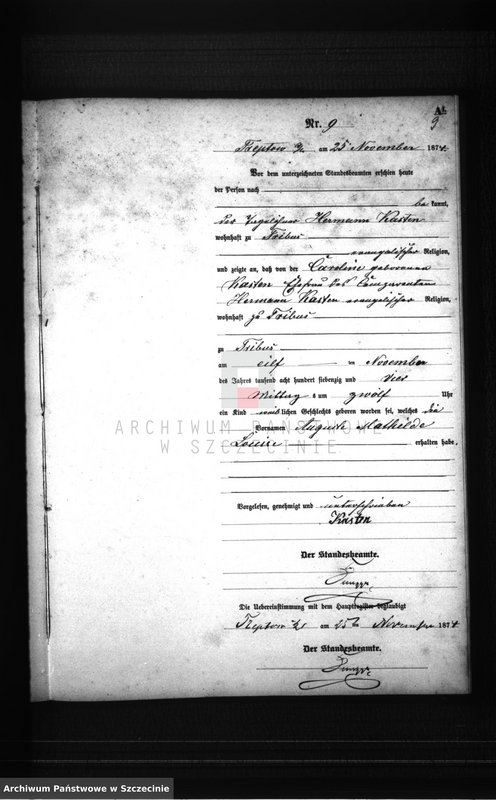 A1.
Nr. 9
9
Treptow a/R. am 25 November 1874.
Vor dem unterzeichneten Standesbeamten erschien heute
der Person nach
bekannt,
der Hermann Kasten
wohnhaft zu Tribus
evangelischer Religion,
und zeigte an, daß von der Caroline geborenen
Kasten Ehefrau des
Hermann Kasten evangelischer Religion,
wohnhaft zu Tribus
zu Tribus
am eilf ten November
des Jahres tausend acht hundert siebenzig und vier
Mittag s um zwölf Uhr
ein Kind weiblichen Geschlechts geboren worden sei, welches die
Vornamen Auguste Mathilde
Louise erhalten habe.
Vorgelesen, genehmigt und unterschrieben
Kasten
Der Standesbeamte.
Die Uebereinstimmung mit dem Hauptregister beglaubigt
Treptow a/R am 25ten November 1874
Der Standesbeamte.
ARCHIWUM PAŃSTWOWE
W SZCZECINIE
Archiwum Państwowe w Szczecinie